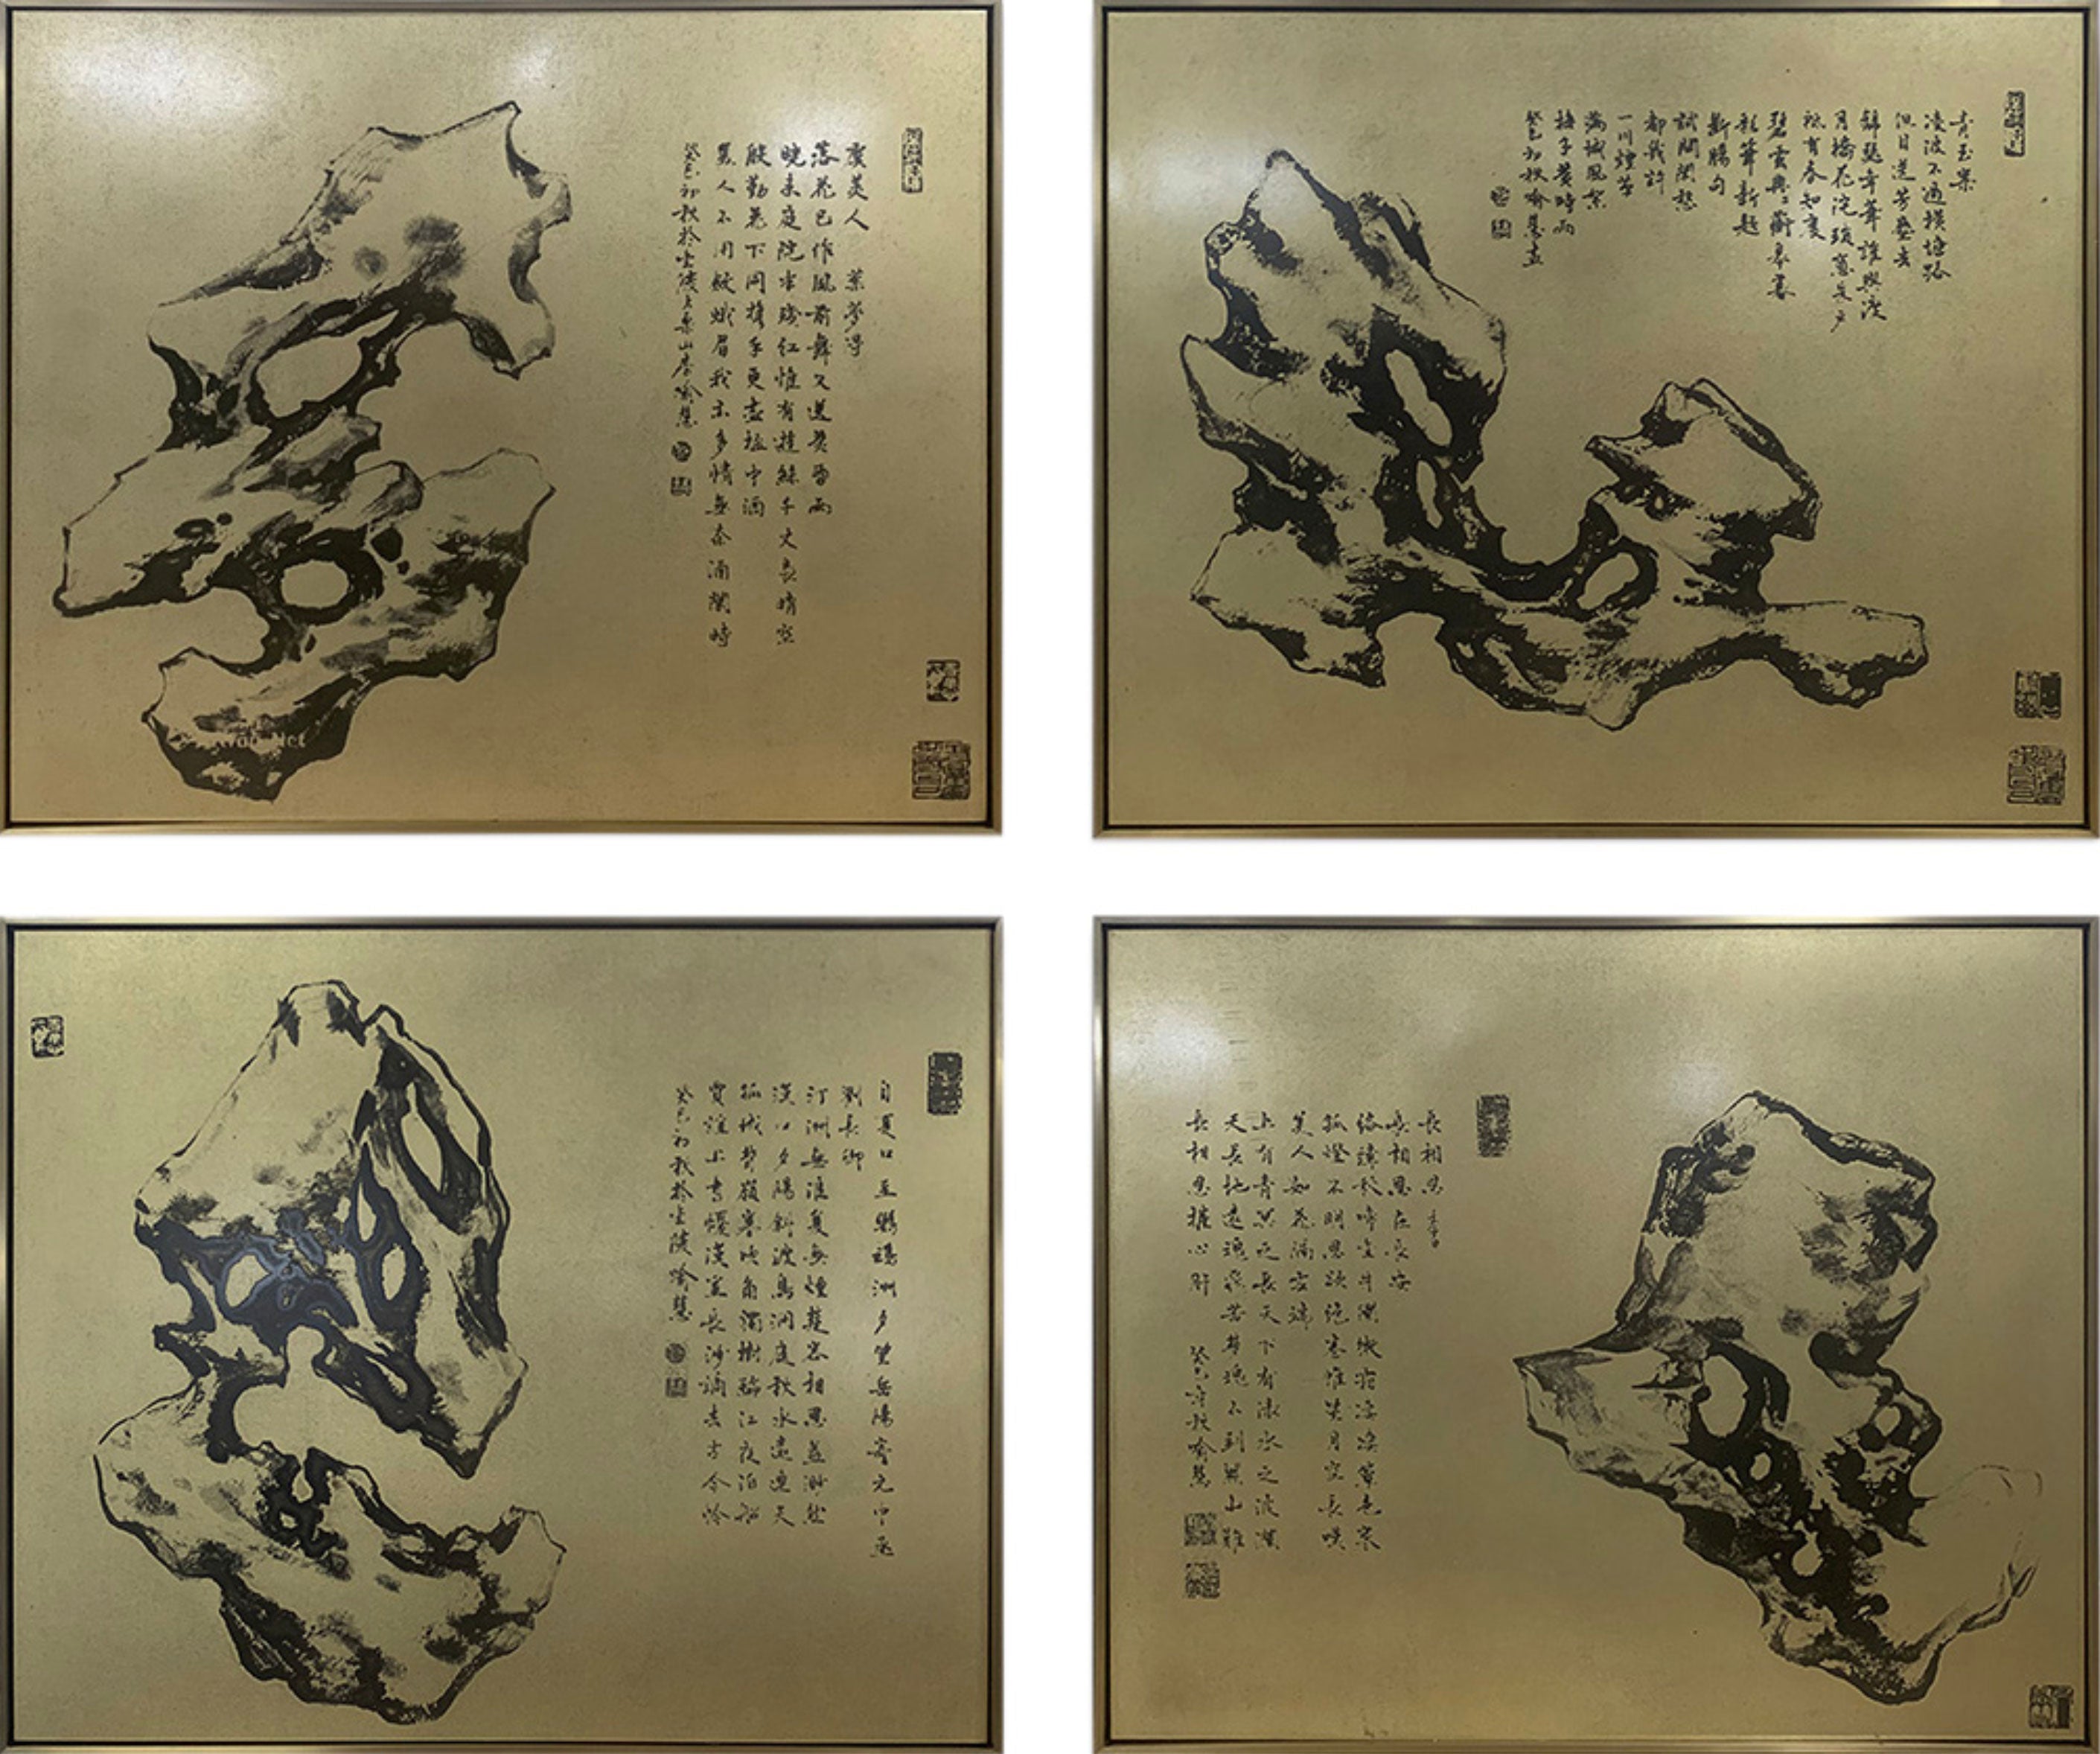 虞美人 葉夢得
落花已作風前舞又送黃昏雨
曉來庭院半殘紅惟有遊絲千丈裊晴空
殷勤花下同攜手更盡杯中酒
美人不用斂蛾眉我亦多情無奈酒闌時
癸巳初秋於金陵山房喻慧
青玉案
凌波不過橫塘路
但目送芳塵去
錦瑟年華誰與度
月橋花院瑣窗朱戶
秪有春知處
碧雲冉冉蘅皋暮
彩筆新題
斷腸句
試問閑愁
都幾許
一川煙草
滿城風絮
梅子黃時雨
癸巳初秋喻慧畫
自夏口至鸚鵡洲夕望岳陽寄元中丞
劉長卿
汀洲無浪復無煙楚客相思益渺然
漢口夕陽斜渡鳥洞庭秋水遠連天
孤城背嶺寒吹角獨樹臨江夜泊船
賈誼上書憂漢室長沙謫去古今憐
癸巳初秋於金陵喻慧
長相思 李白
長相思在長安
絡緯秋啼金井闌微霜淒淒簟色寒
孤燈不明思欲絕卷帷望月空長嘆
美人如花隔雲端
上有青冥之長天下有淥水之波瀾
天長地遠魂飛苦夢魂不到關山難
長相思摧心肝
癸巳初秋喻慧